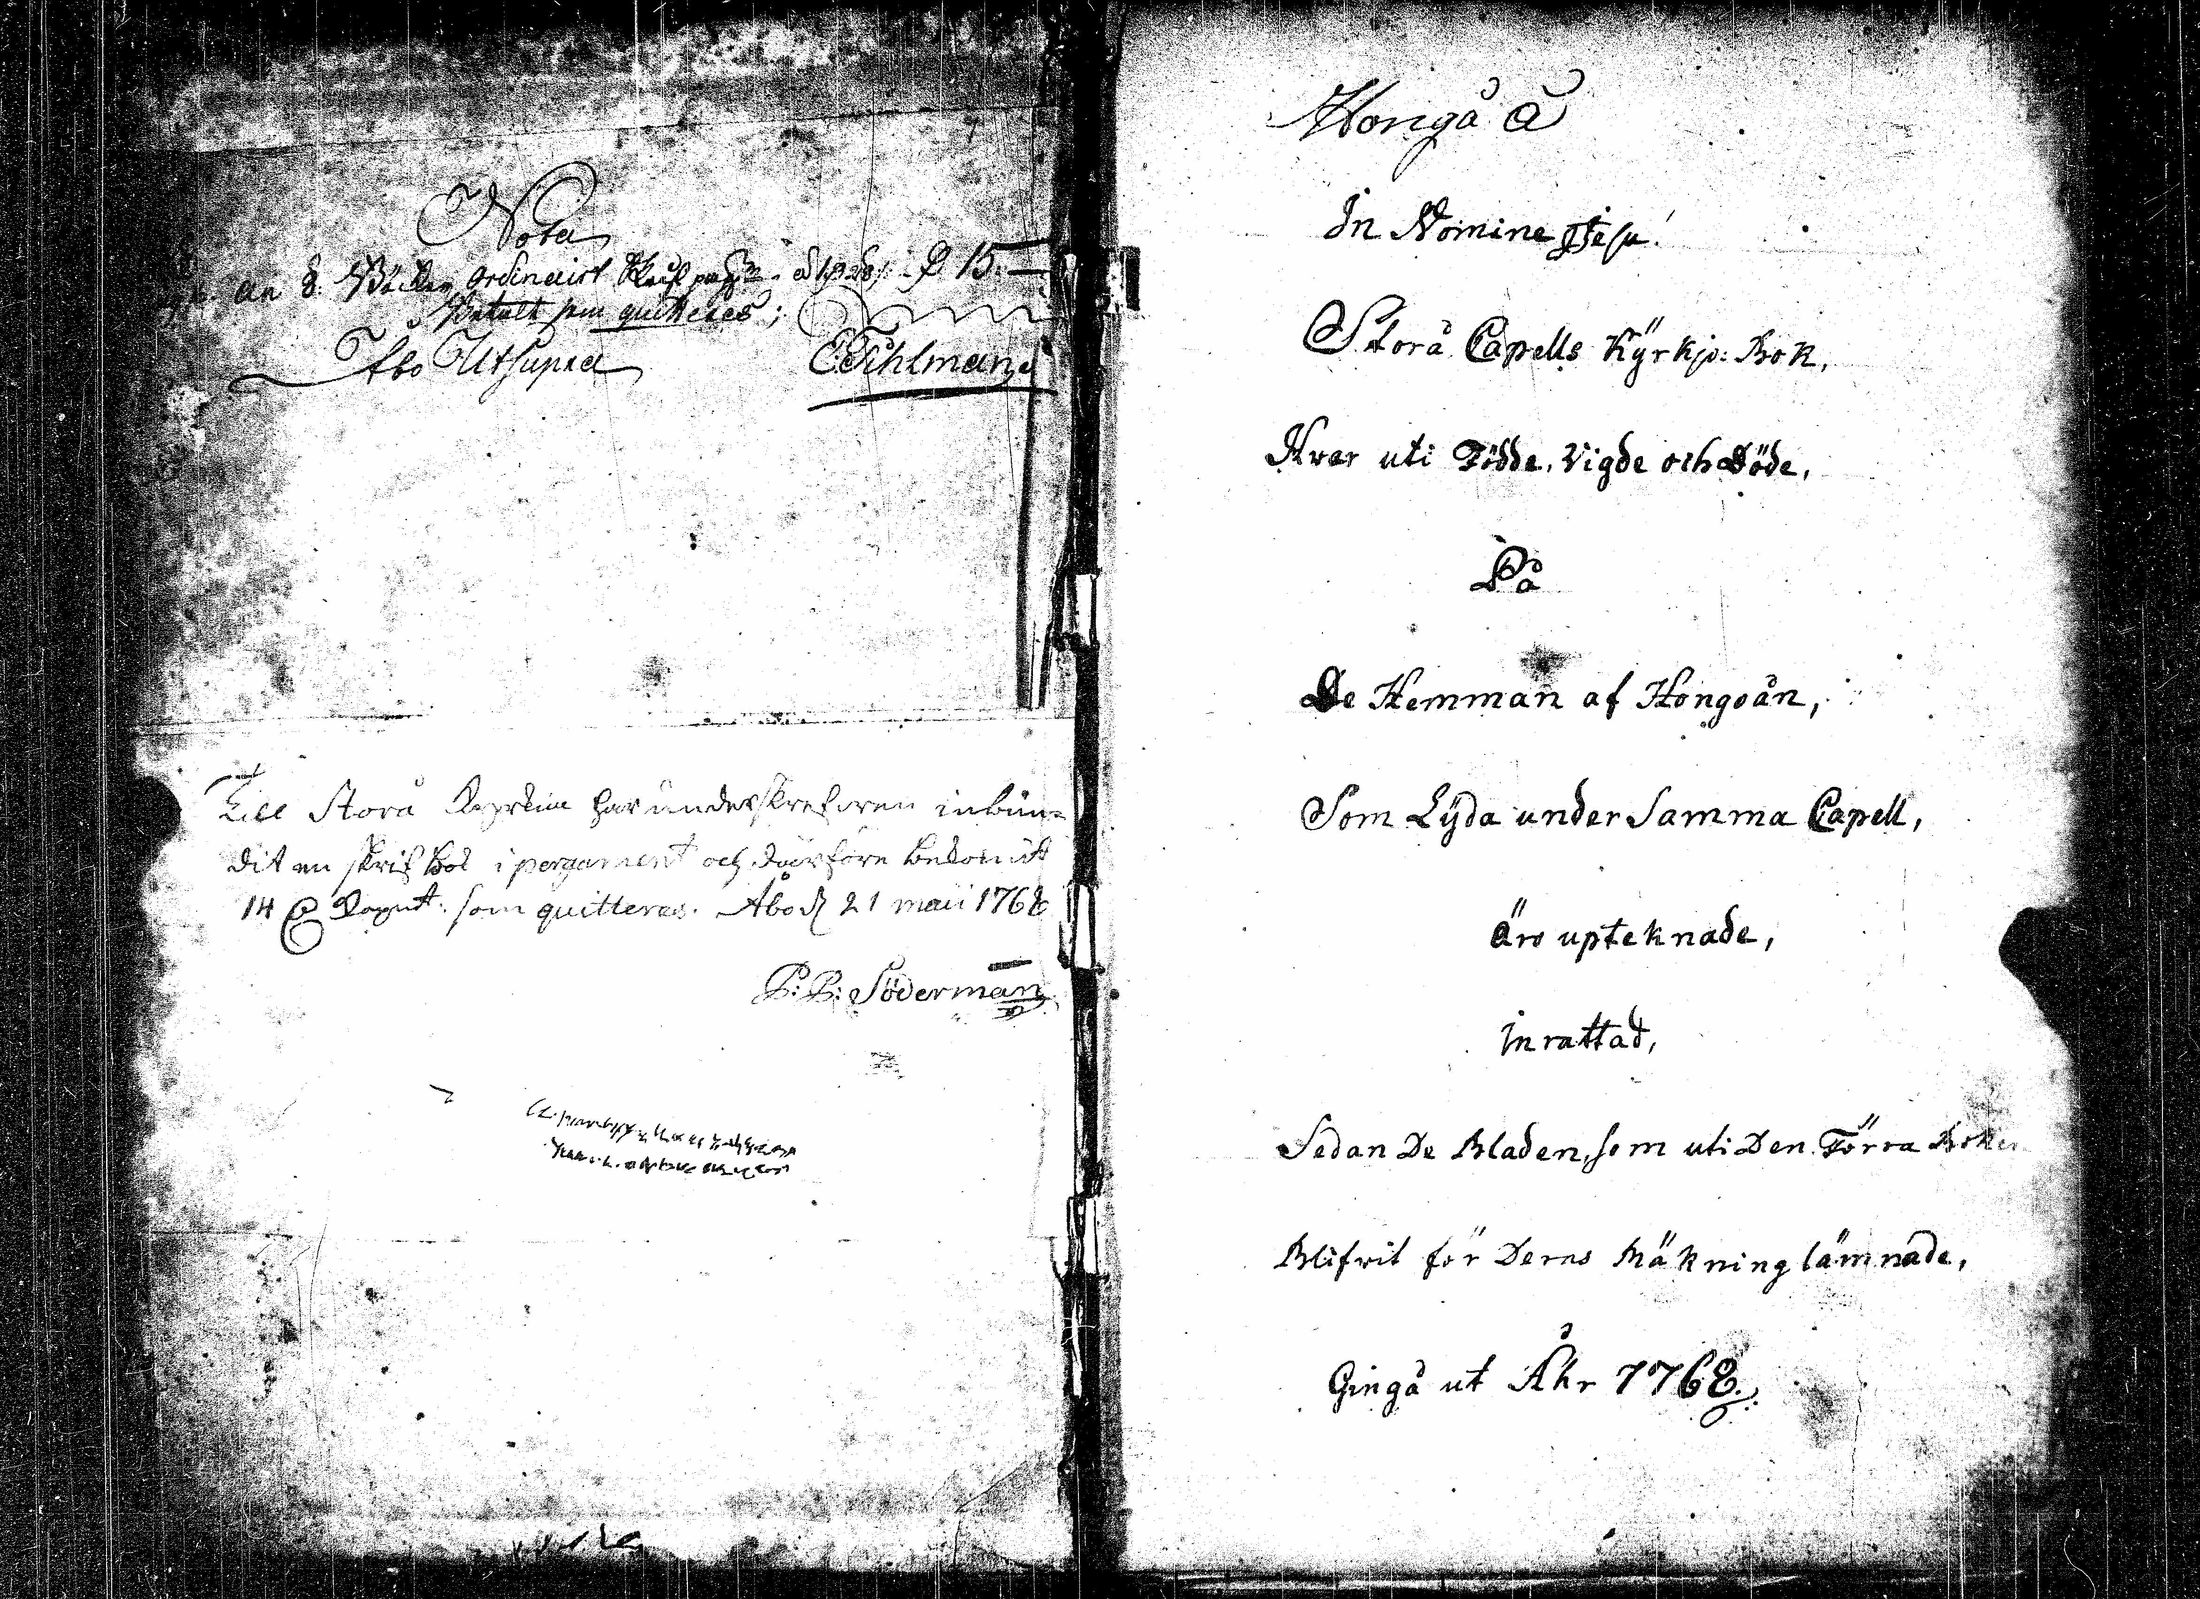 Nota
an 8. Böcker ordinairt 15
Betalt som quitteras;
Åbo Utsupra
Till Storå har underskrefven inbun-
dit en skrif bok i pergament och därföre bekomit
14 som quitteras. Åbo d 21 maii 1768
Söderman
Hongå å
In Nomine Jesu!
Storå Capells Kÿrkjo: Bok,
Hvar uti Födde, Vigde och Döde,
På
De Hemman af Hongoån,
Som Lÿda under Samma Capell,
äro upteknade,
inrattad,
Sedan De Bladen, som uti Den Förra Boken
Blifvit för Deras Räkning lämnade,
Gingå ut Åhr 1768.